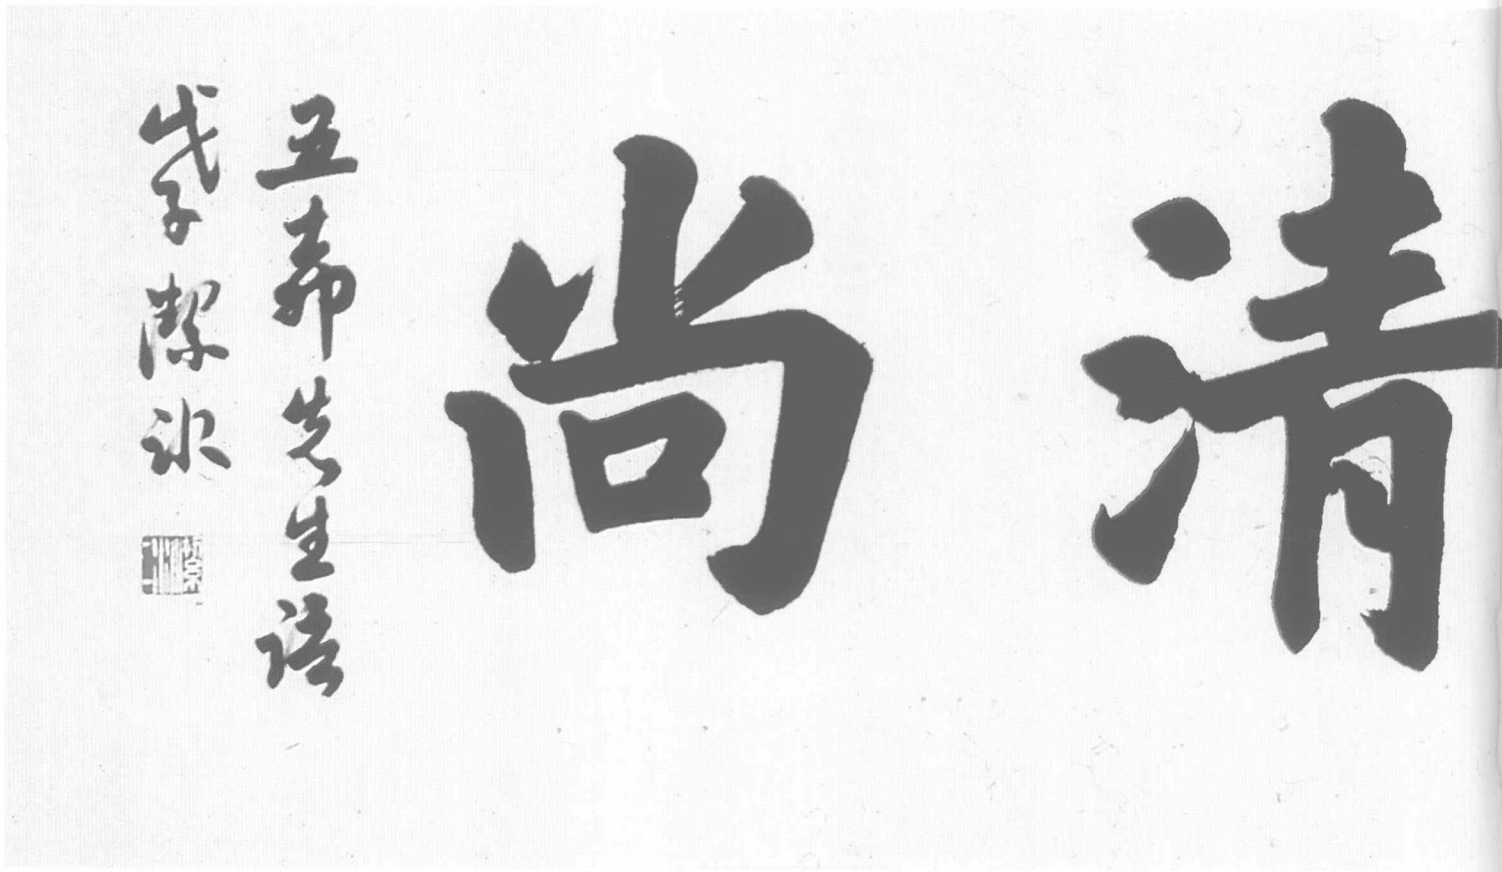 清尚
丑芾先生語
戊子潔冰